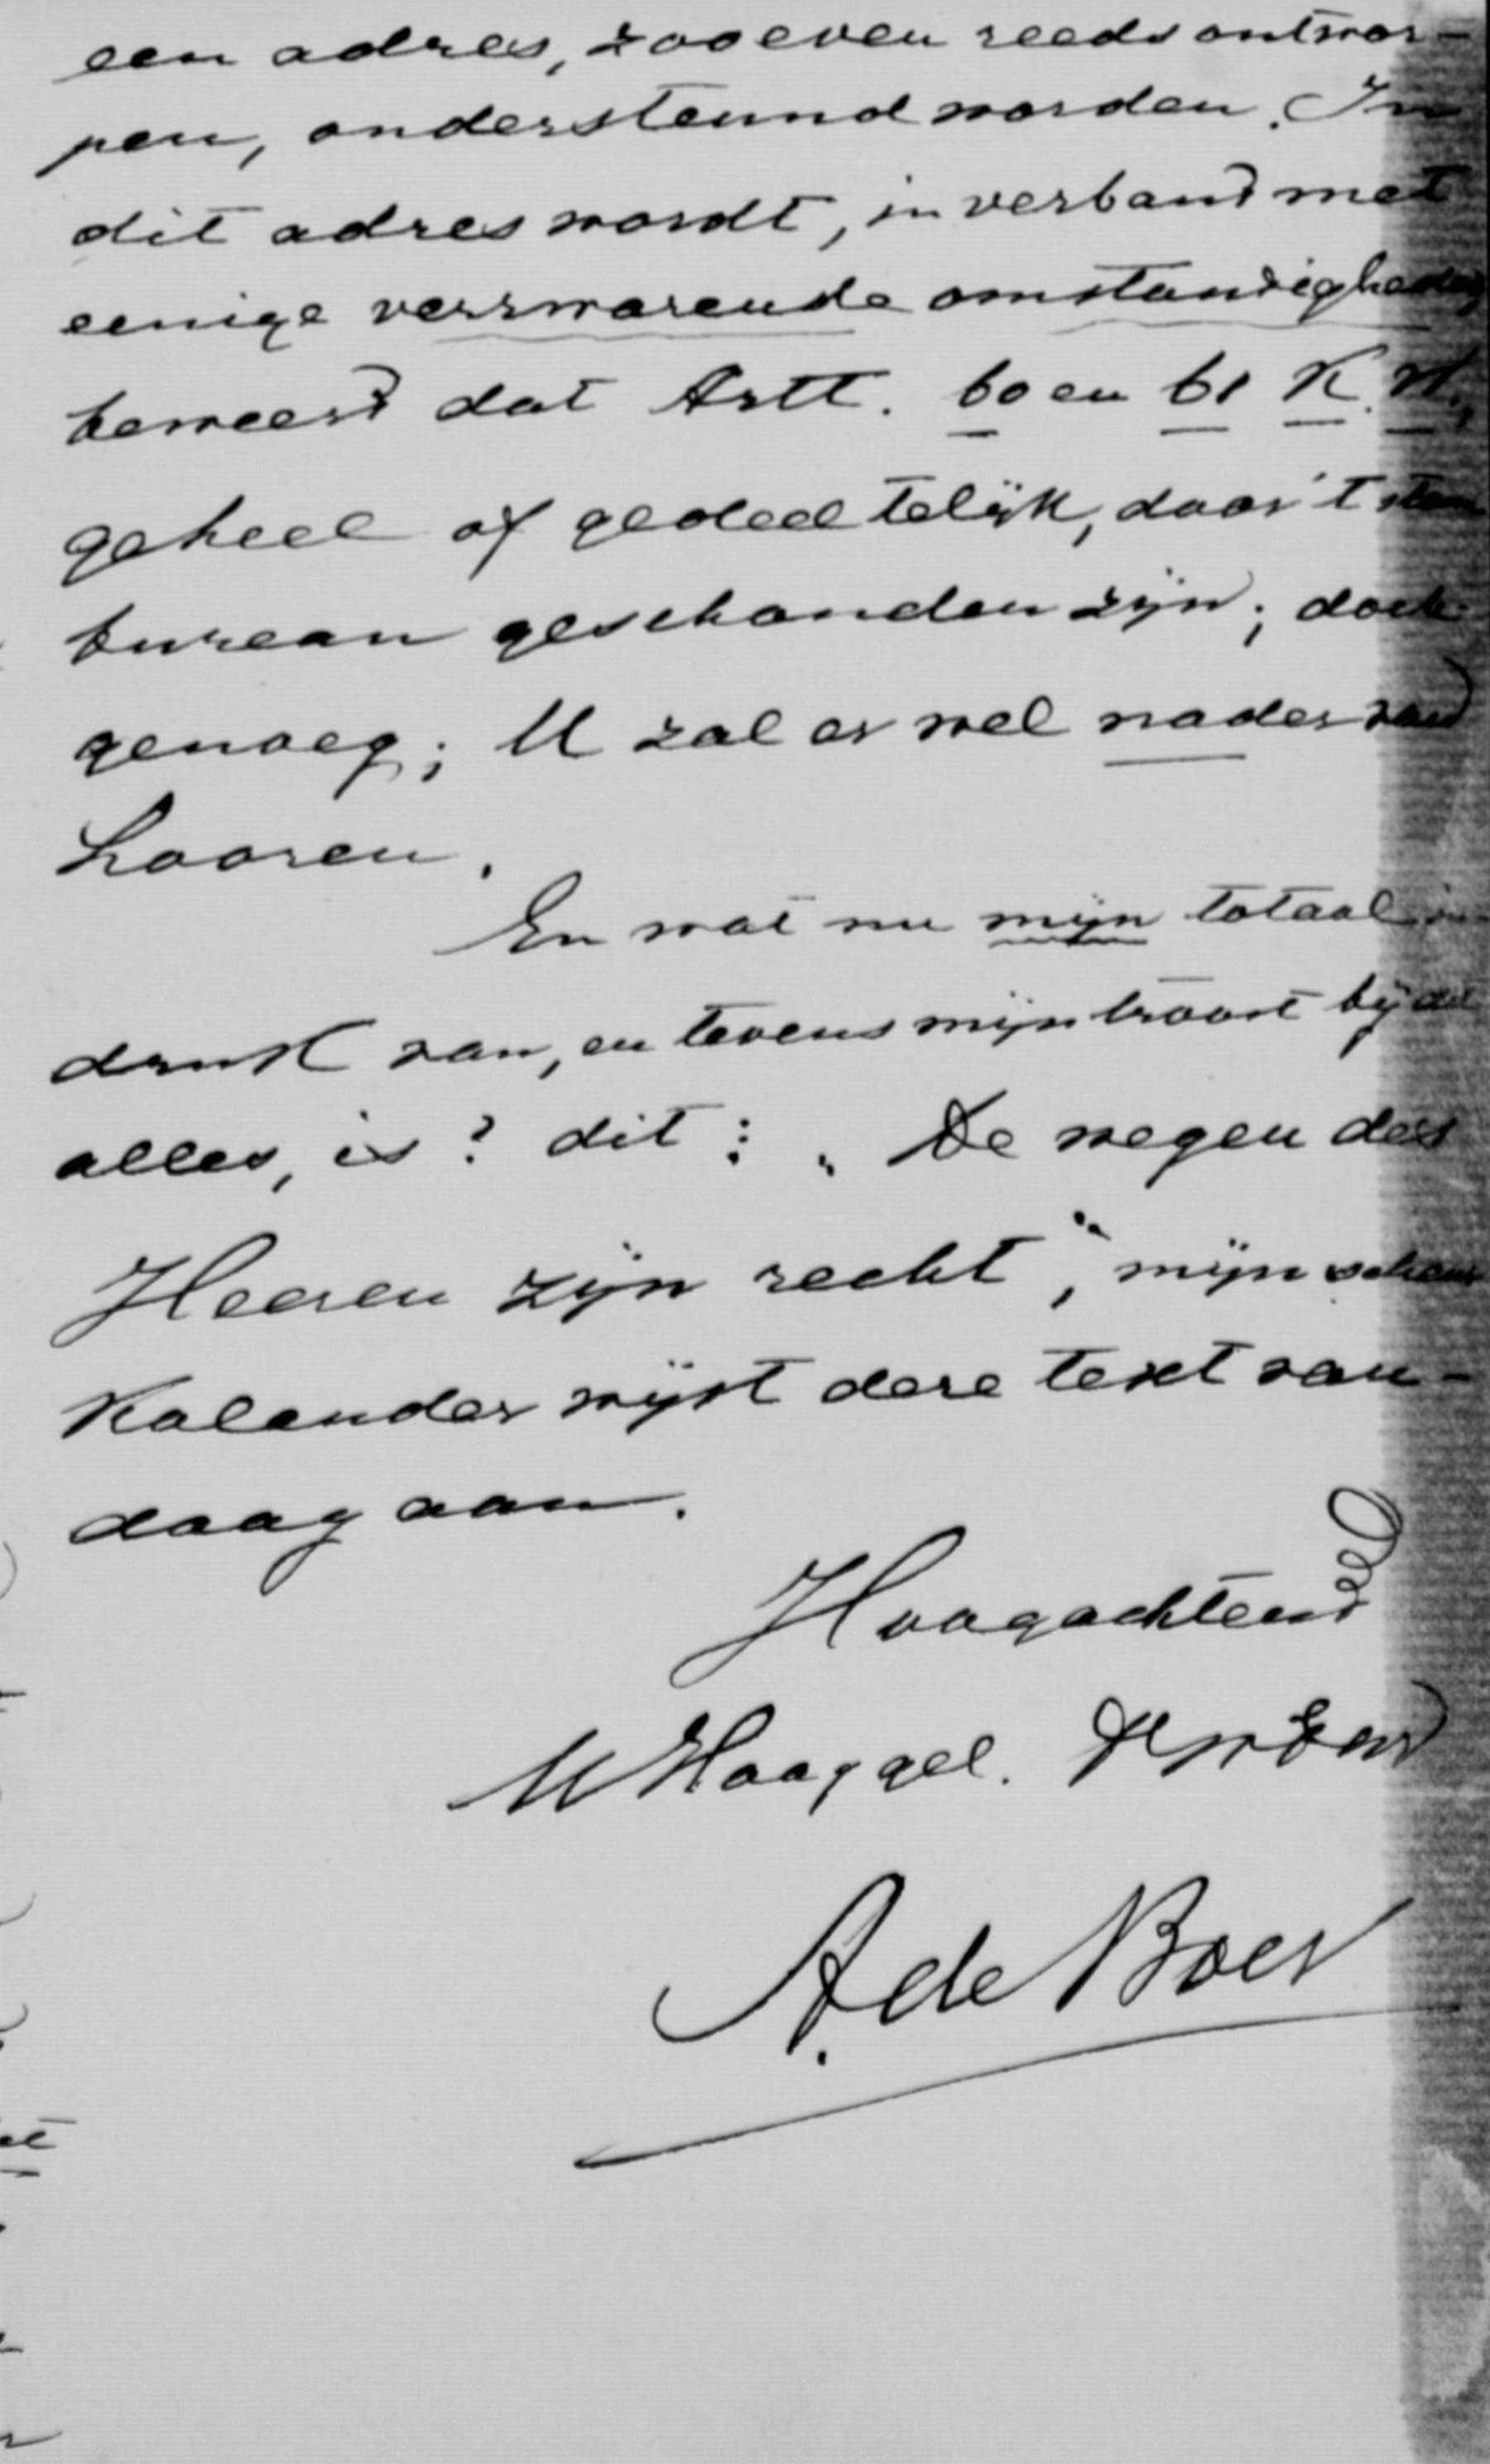 een adres, zooeven reeds ontwor-
pen, ondersteund worden. In
dit adres wordt, in verband met
eenige verzwarende omstandigheden
beweerd dat Artt. 60 en 61 K.W.,
geheel of gedeeltelijk, door 't stem
bureau geschonden zijn; doch
genoeg; U zal er wel nader van
hooren.
En wat nu mijn totaal in
druk van, en tevens mijn troost bij dit
alles, is? dit: „De wegen des
Heeren zijn recht", mijn scheur
kalender wijst deze text van-
daag aan.
Hoogachtend
UHooggel.
A. de Boer